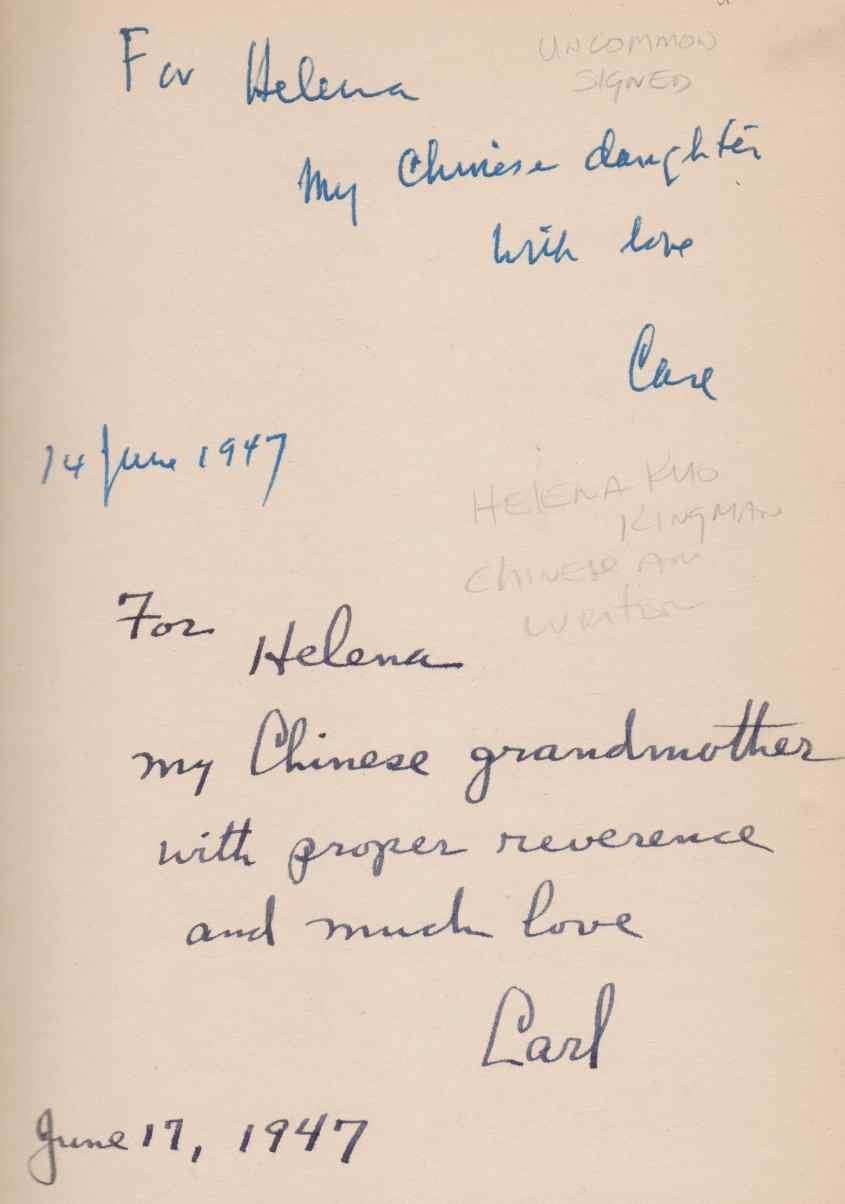 For Helena
UNCOMMON
SIGNED
My Chinese daughter
with love
14 June 1947
HELENA KUO
KINGMAN
CHINESE AM
WRITER
For Helena
my Chinese grandmother
with proper reverence
and much love
Carl
June 17, 1947